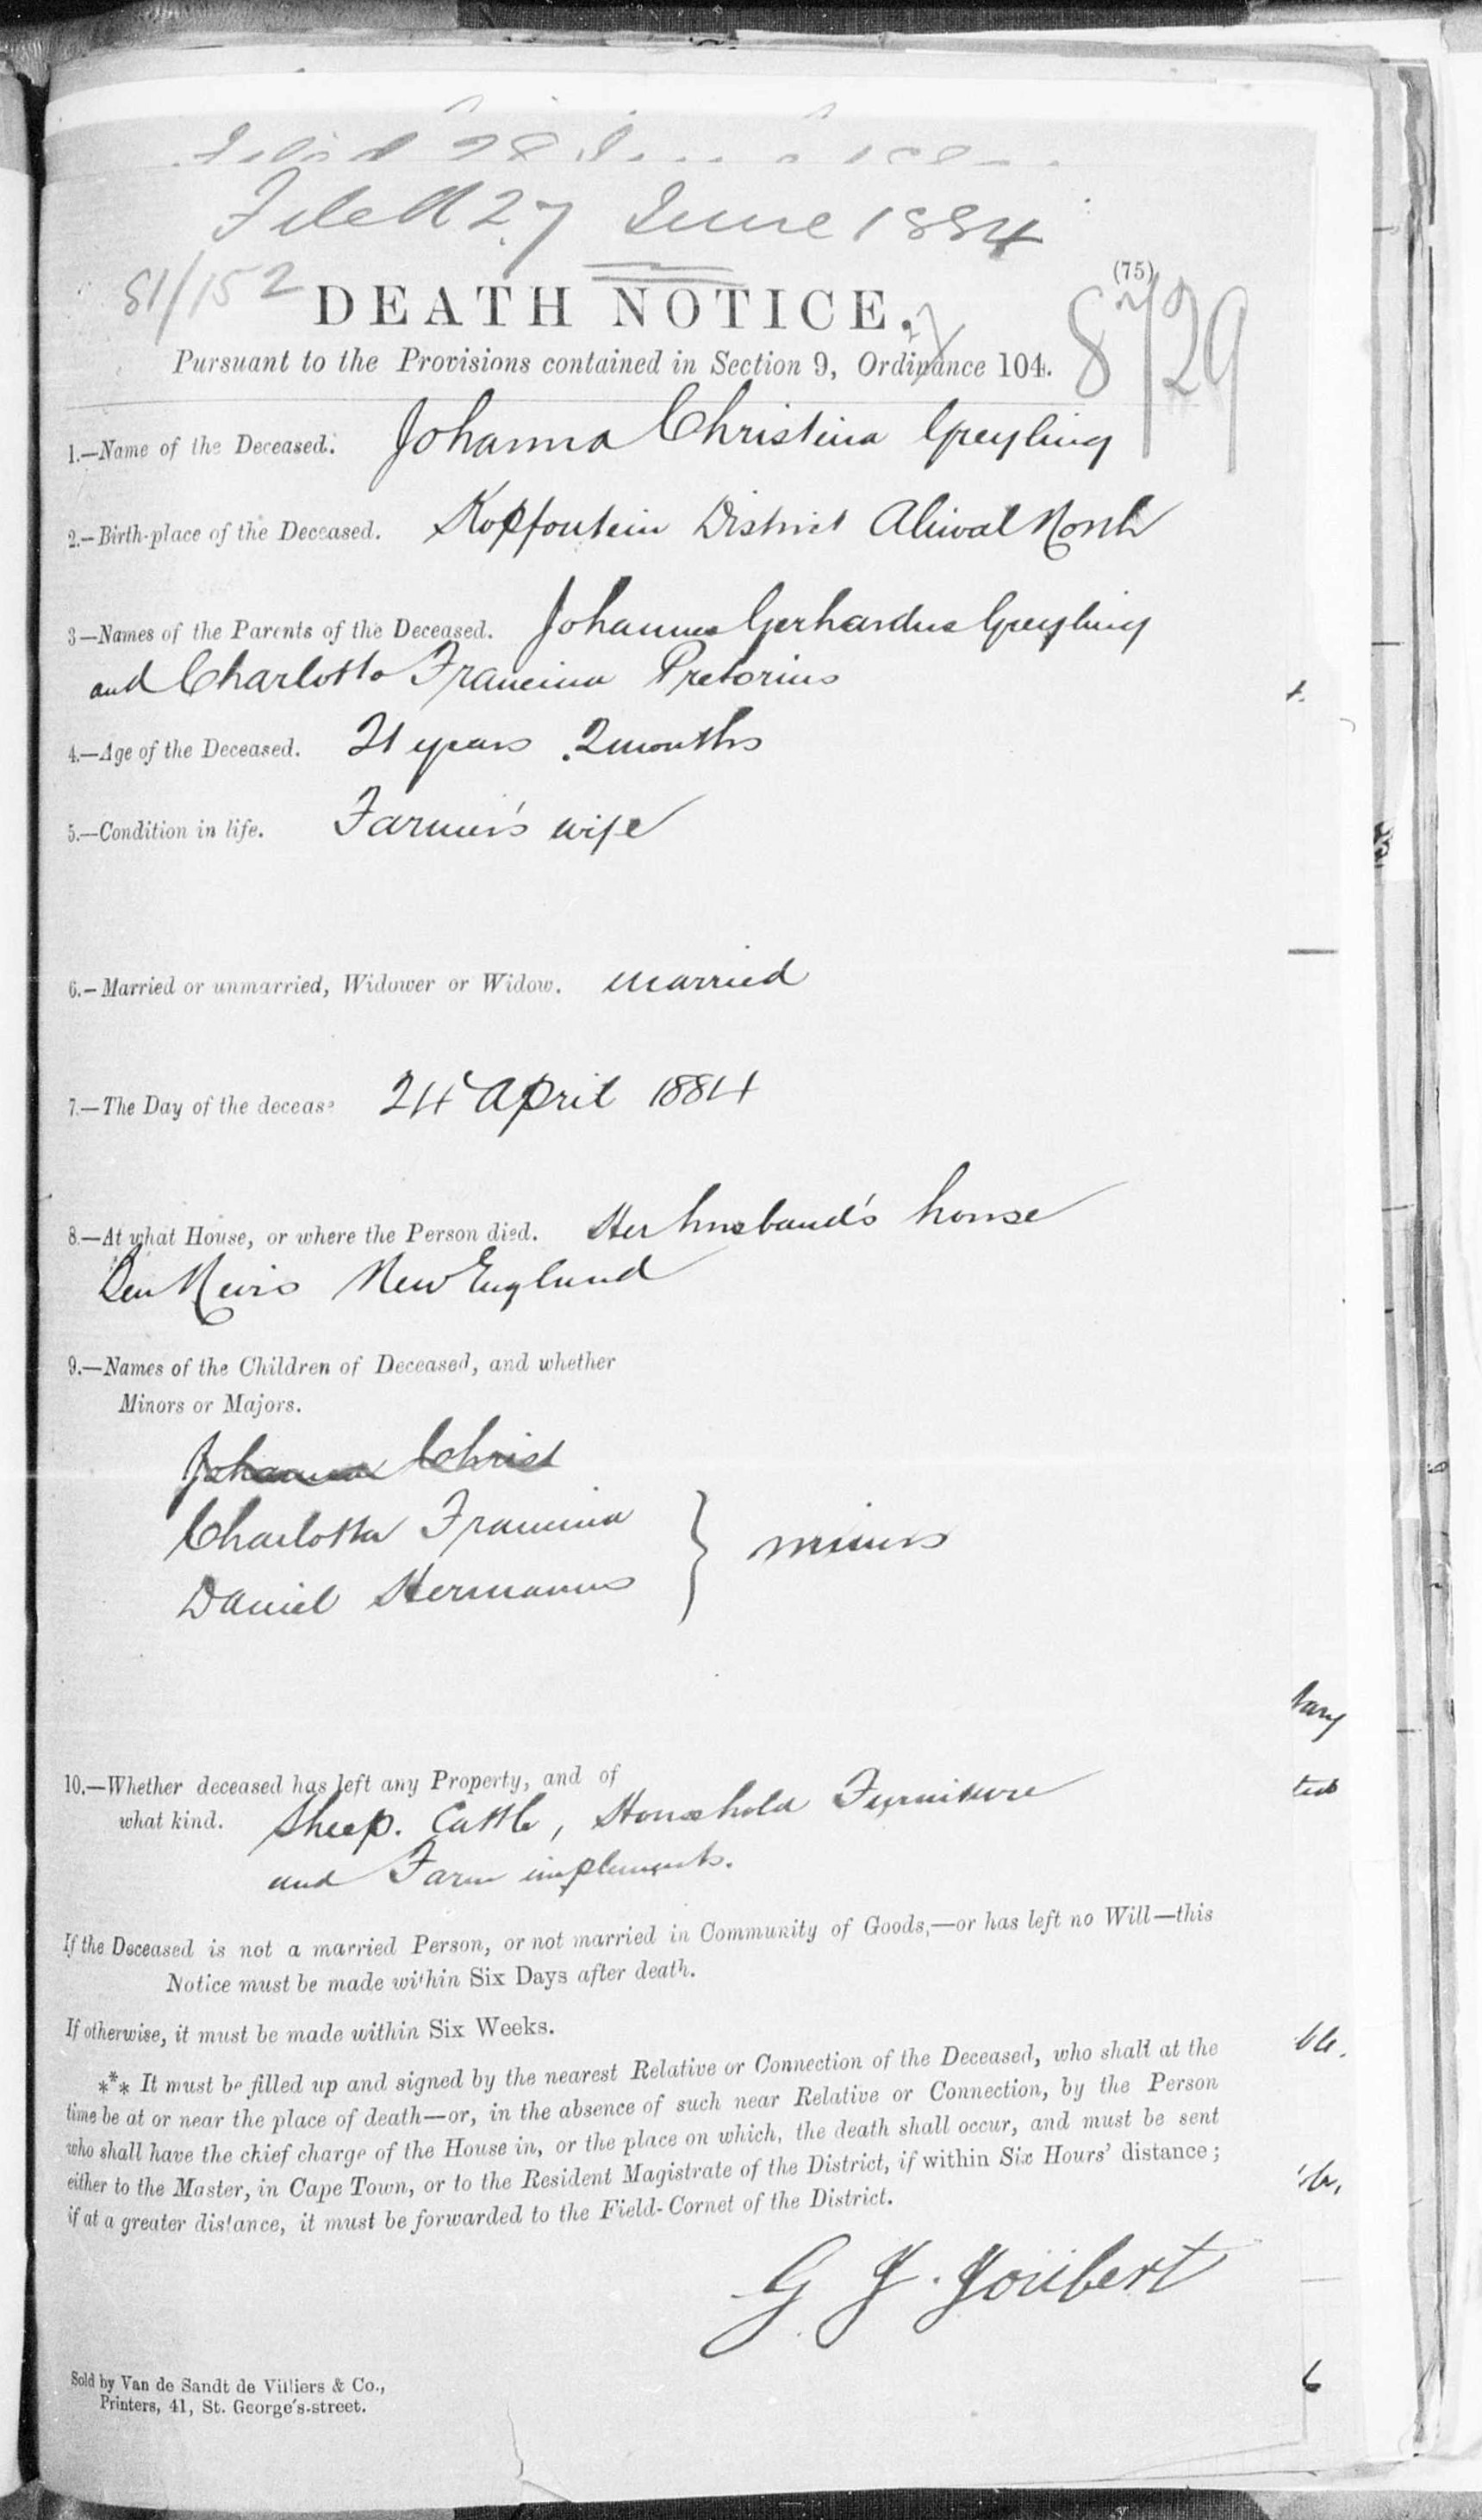 Filed 27 June 1884
81/152
(75)
DEATH NOTICE.
8/29
Pursuant to the Provisions contained in Section 9, Ordinance 104.
1.—Name of the Deceased. Johanna Christina Greyling
2.—Birth-place of the Deceased. Kopfontein District Aliwal North
3—Names of the Parents of the Deceased. Johannes Gerhardus Greyling
and Charlotta Francina Pretorius
4.—Age of the Deceased. 21 years 2 months
5.—Condition in life. Farmer's wife
6.—Married or unmarried, Widower or Widow. married
7.—The Day of the decease 24 April 1884
8.—At what House, or where the Person died. Her husband's house
Ben Nevis New England
9.—Names of the Children of Deceased, and whether
Minors or Majors.
Johanna Christ
Charlotta Francina
Daniel Hermanus } minors
10.—Whether deceased has left any Property, and of
what kind. Sheep. Cattle, Household Furniture
and Farm implements.
If the Deceased is not a married Person, or not married in Community of Goods,—or has left no Will—this
Notice must be made within Six Days after death.
If otherwise, it must be made within Six Weeks.
*** It must be filled up and signed by the nearest Relative or Connection of the Deceased, who shall at the
time be at or near the place of death—or, in the absence of such near Relative or Connection, by the Person
who shall have the chief charge of the House in, or the place on which, the death shall occur, and must be sent
either to the Master, in Cape Town, or to the Resident Magistrate of the District, if within Six Hours' distance;
if at a greater distance, it must be forwarded to the Field-Cornet of the District.
G J. Joubert
Sold by Van de Sandt de Villiers & Co.,
Printers, 41, St. George's-street.